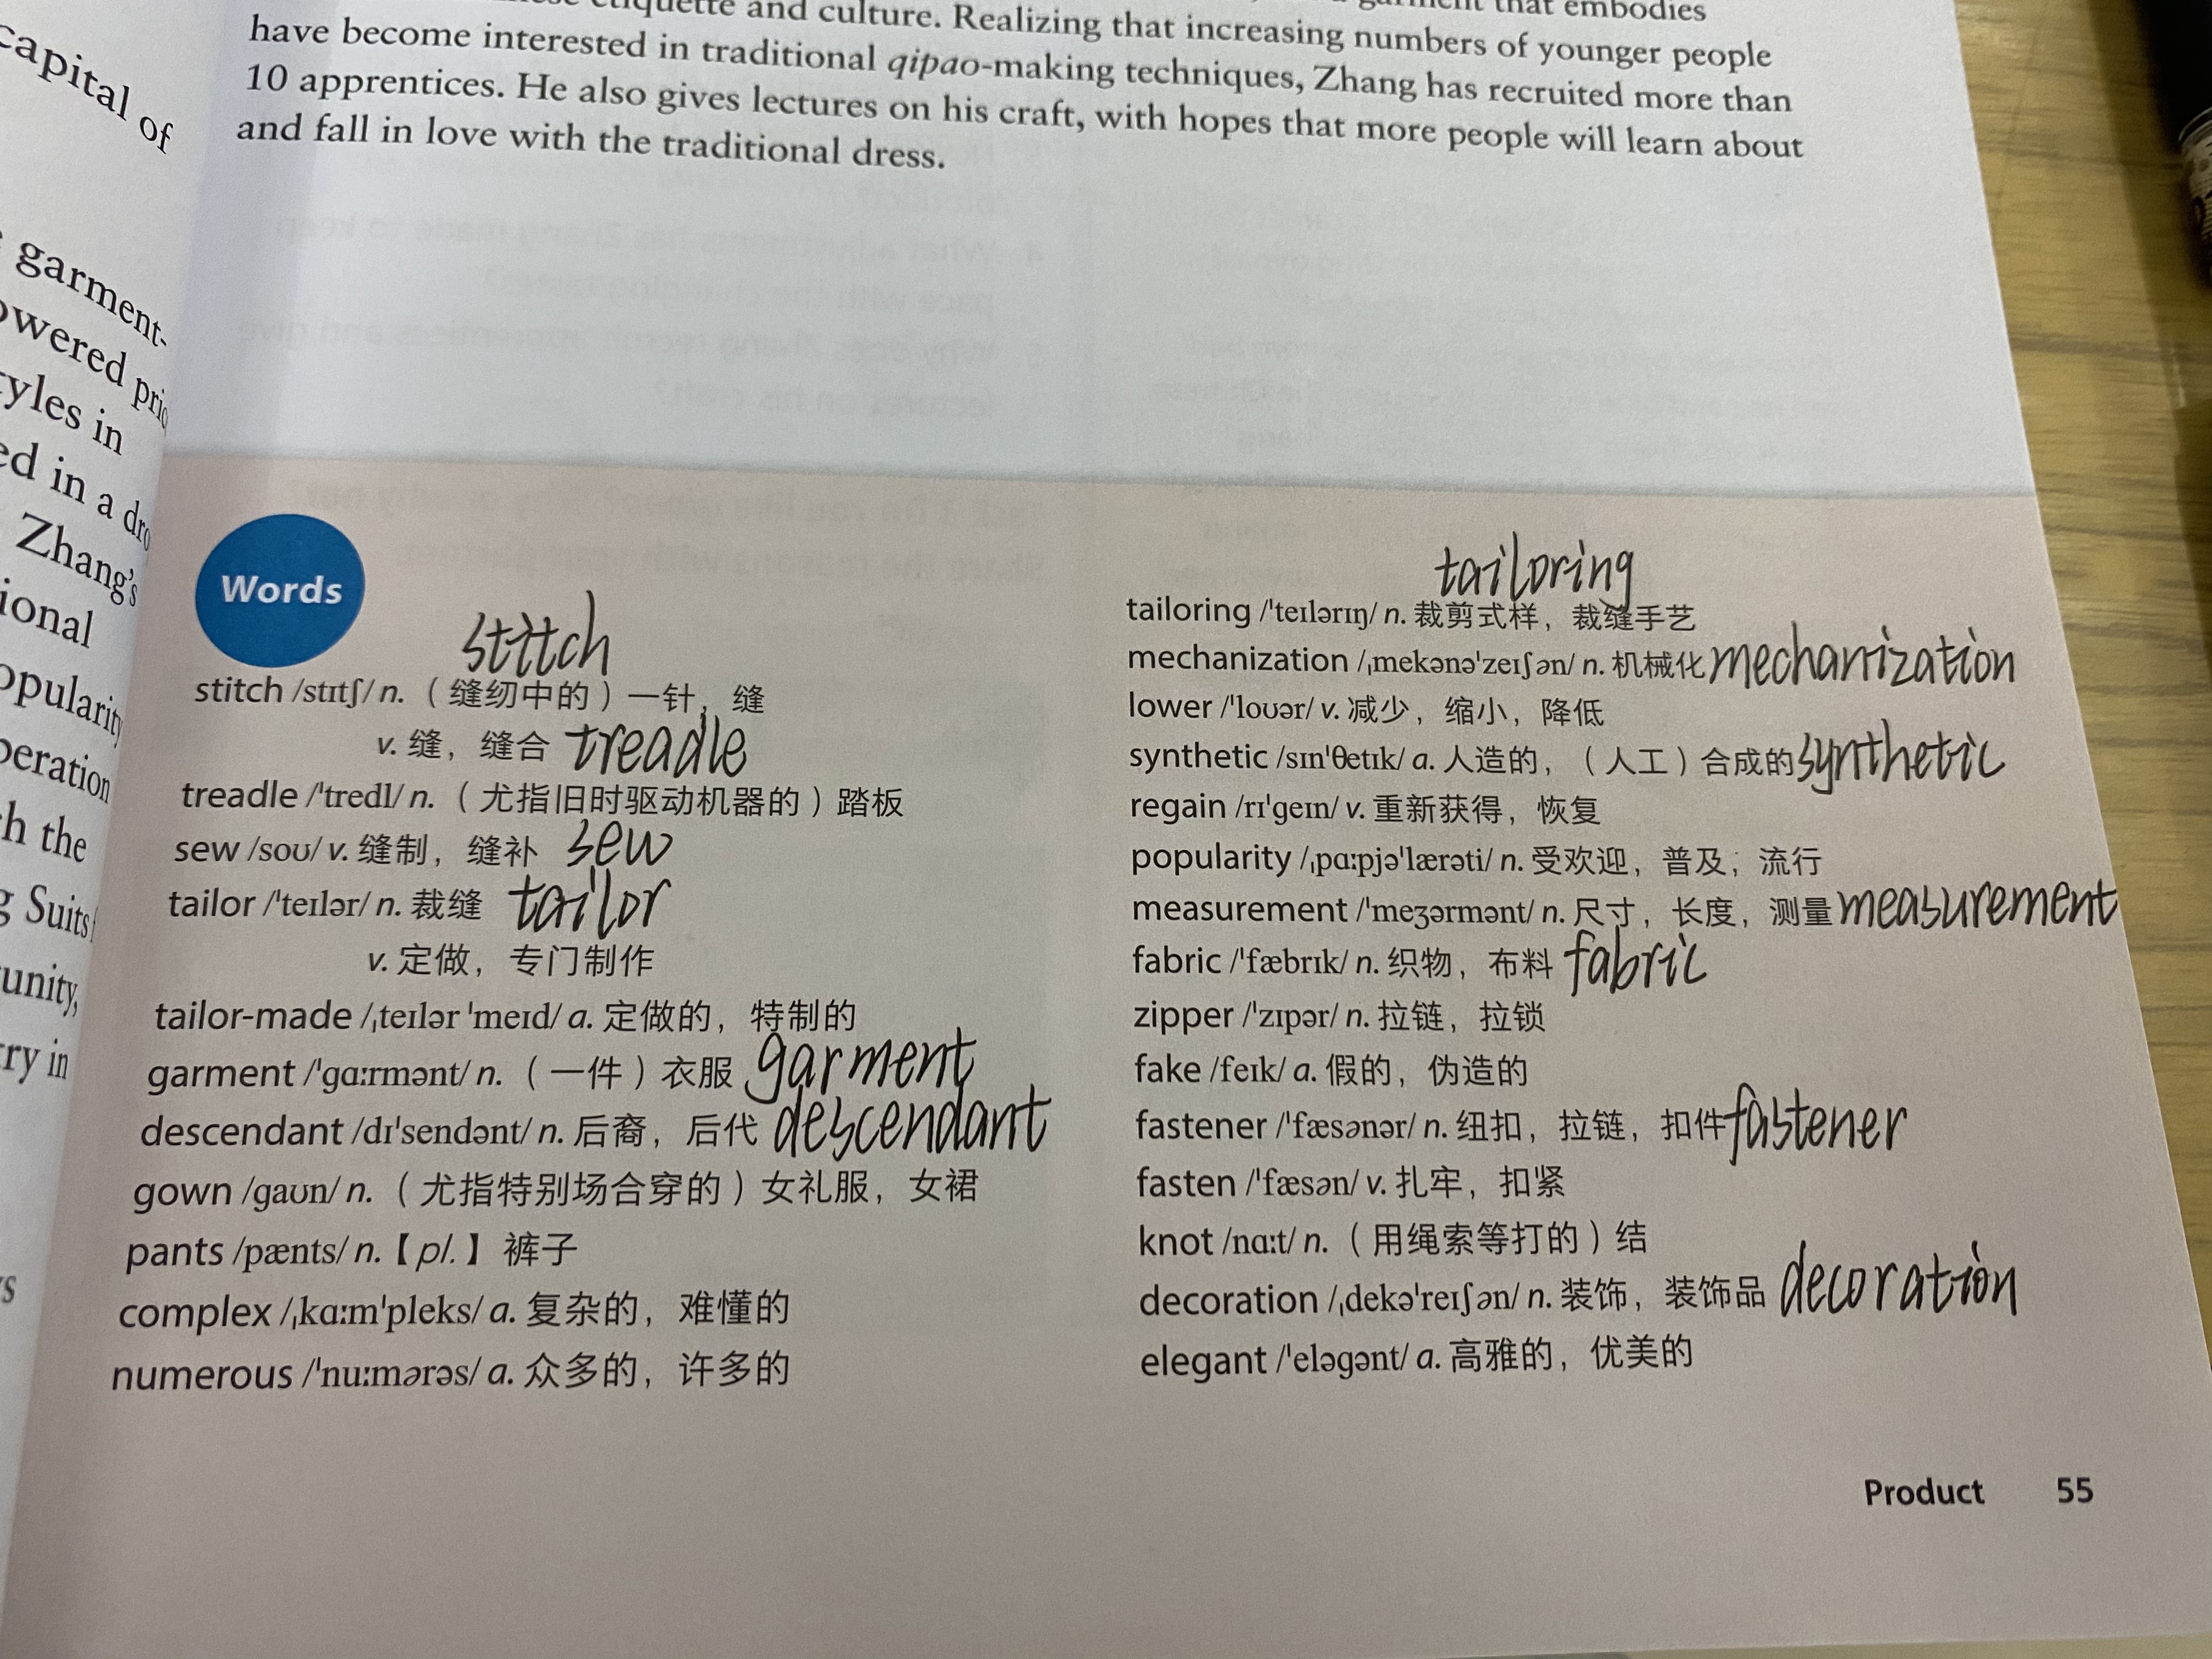 capital of
garment-
styles in
ed in a
Zhang's
etiquette and culture. Realizing that increasing numbers of younger people
have become interested in traditional qipao-making techniques, Zhang has recruited more than
10 apprentices. He also gives lectures on his craft, with hopes that more people will learn about
and fall in love with the traditional dress.
Words
stitch
stitch /stɪtʃ/ n.（缝纫中的）一针，缝
v. 缝，缝合 treadle
treadle /ˈtredl/ n.（尤指旧时驱动机器的）踏板
sew /soʊ/ v. 缝制，缝补 sew
tailor /ˈteɪlər/ n. 裁缝 tailor
v. 定做，专门制作
tailor-made /ˌteɪlər ˈmeɪd/ a. 定做的，特制的
garment /ˈɡɑːrmənt/ n.（一件）衣服 garment
descendant /dɪˈsendənt/ n. 后裔，后代 descendant
gown /ɡaʊn/ n.（尤指特别场合穿的）女礼服，女裙
pants /pænts/ n.【pl.】裤子
complex /ˌkɑːmˈpleks/ a. 复杂的，难懂的
numerous /ˈnuːmərəs/ a. 众多的，许多的
tailoring
tailoring /ˈteɪlərɪŋ/ n. 裁剪式样，裁缝手艺
mechanization /ˌmekənəˈzeɪʃən/ n. 机械化 mechanization
lower /ˈloʊər/ v. 减少，缩小，降低
synthetic /sɪnˈθetɪk/ a. 人造的，（人工）合成的 synthetic
regain /rɪˈɡeɪn/ v. 重新获得，恢复
popularity /ˌpɑːpjəˈlærəti/ n. 受欢迎，普及，流行
measurement /ˈmeʒərmənt/ n. 尺寸，长度，测量 measurement
fabric /ˈfæbrɪk/ n. 织物，布料 fabric
zipper /ˈzɪpər/ n. 拉链，拉锁
fake /feɪk/ a. 假的，伪造的
fastener /ˈfæsənər/ n. 纽扣，拉链，扣件 fastener
fasten /ˈfæsən/ v. 扎牢，扣紧
knot /nɑːt/ n.（用绳索等打的）结
decoration /ˌdekəˈreɪʃən/ n. 装饰，装饰品 decoration
elegant /ˈeləɡənt/ a. 高雅的，优美的
Product 55